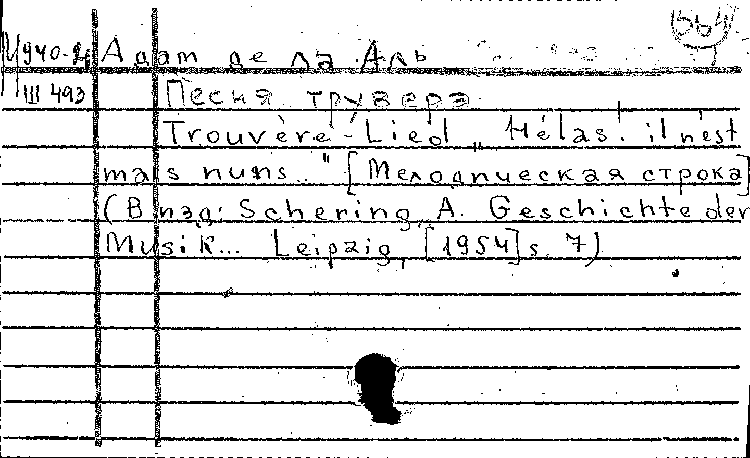 664
Адам де ла Аль
Ш 493
Песня трувера
Trouvère-Lied „Hélas! il n'est
mais nuns.." [Мелодическая строка]
(В изд: Schering, A. Geschichte der
Musik... Leipzig, [1954] s. 7)